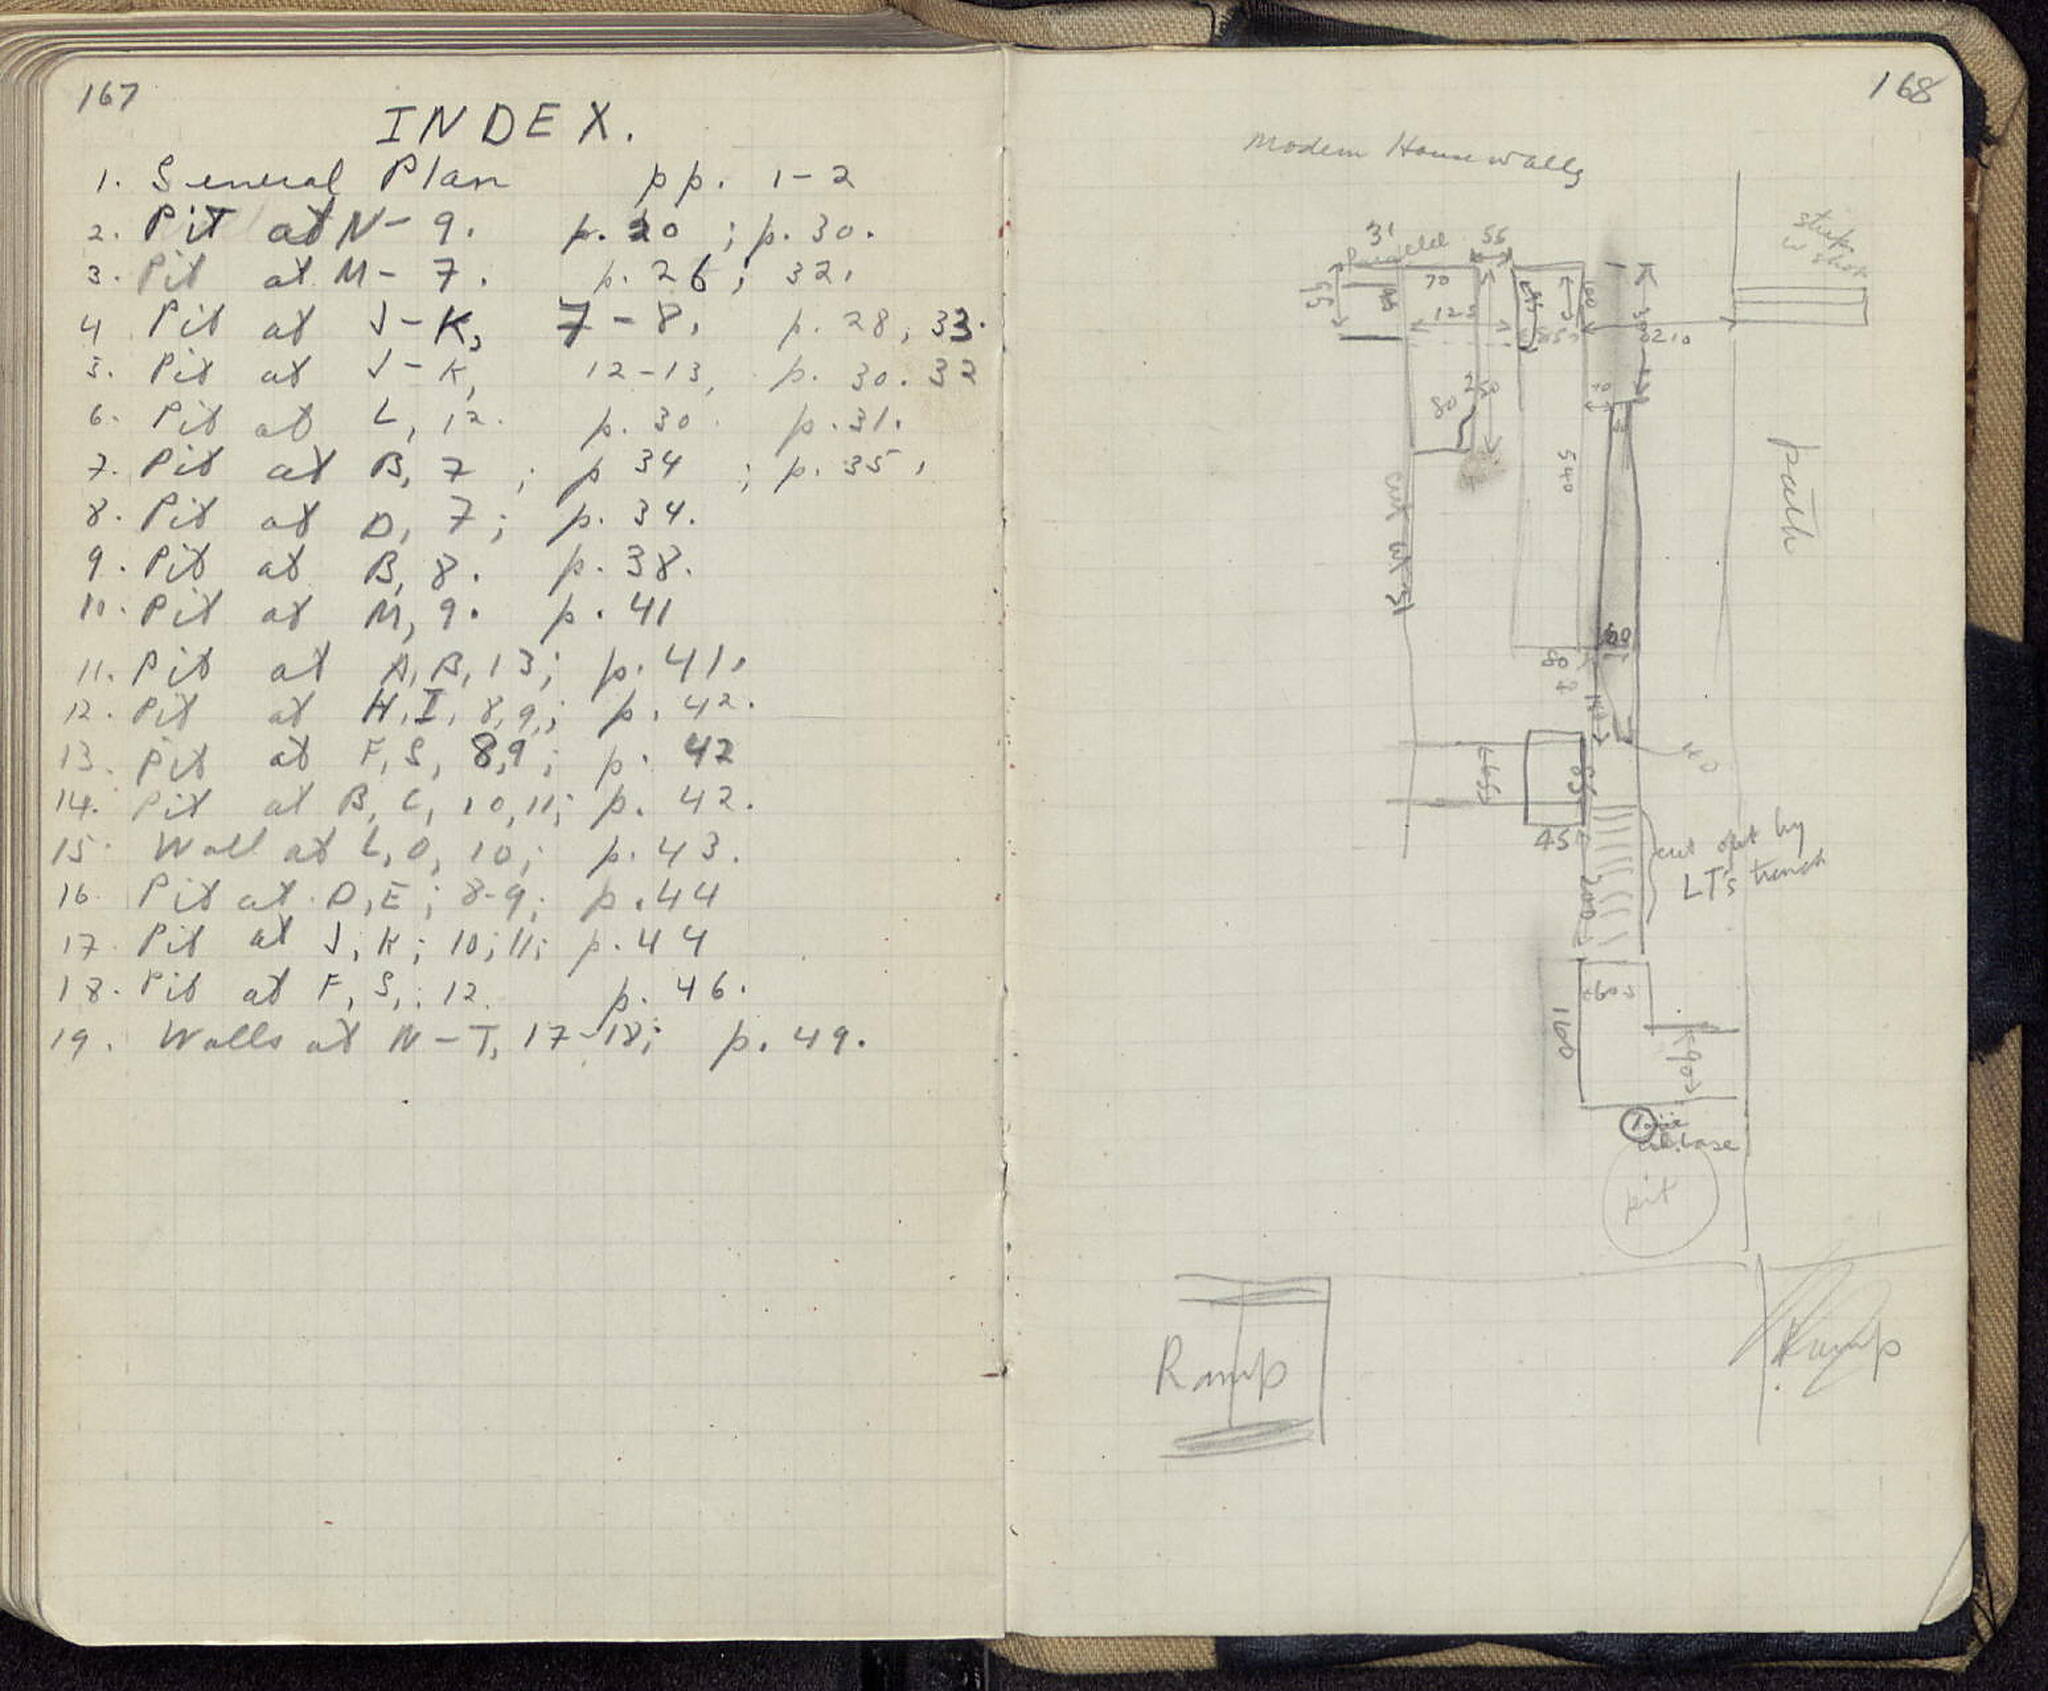 167
INDEX.
1. General Plan pp. 1-2
2. Pit at N-9. p. 20 ; p. 30.
3. Pit at M-7. p. 26; 32.
4 Pit at J-K, 7-8, p. 28, 33.
5. Pit at J-K, 12-13, p. 30. 32
6. Pit at L, 12. p. 30. p. 31.
7. Pit at B, 7 ; p 34 ; p. 35,
8. Pit at D, 7; p. 34.
9. Pit at B, 8. p. 38.
10. Pit at M, 9. p. 41
11. Pit at A, B, 13; p. 41,
12. Pit at H, I, 8,9; p. 42.
13. Pit at F, G, 8,9; p. 42
14. Pit at B, C, 10,11; p. 42.
15. Wall at L, O, 10; p. 43.
16. Pit at D, E; 8-9; p. 44
17. Pit at J, K; 10; 11; p. 44
18. Pit at F, G,: 12. p. 46.
19. Walls at N-T, 17-18; p. 49.
168
Modern House walls
31
Parallel
55
70
125
55
250
80
540
3210
path
80
40
45
65
cut out by
LT's trench
200
60
160
90
base
pit
Ramp
Ramp